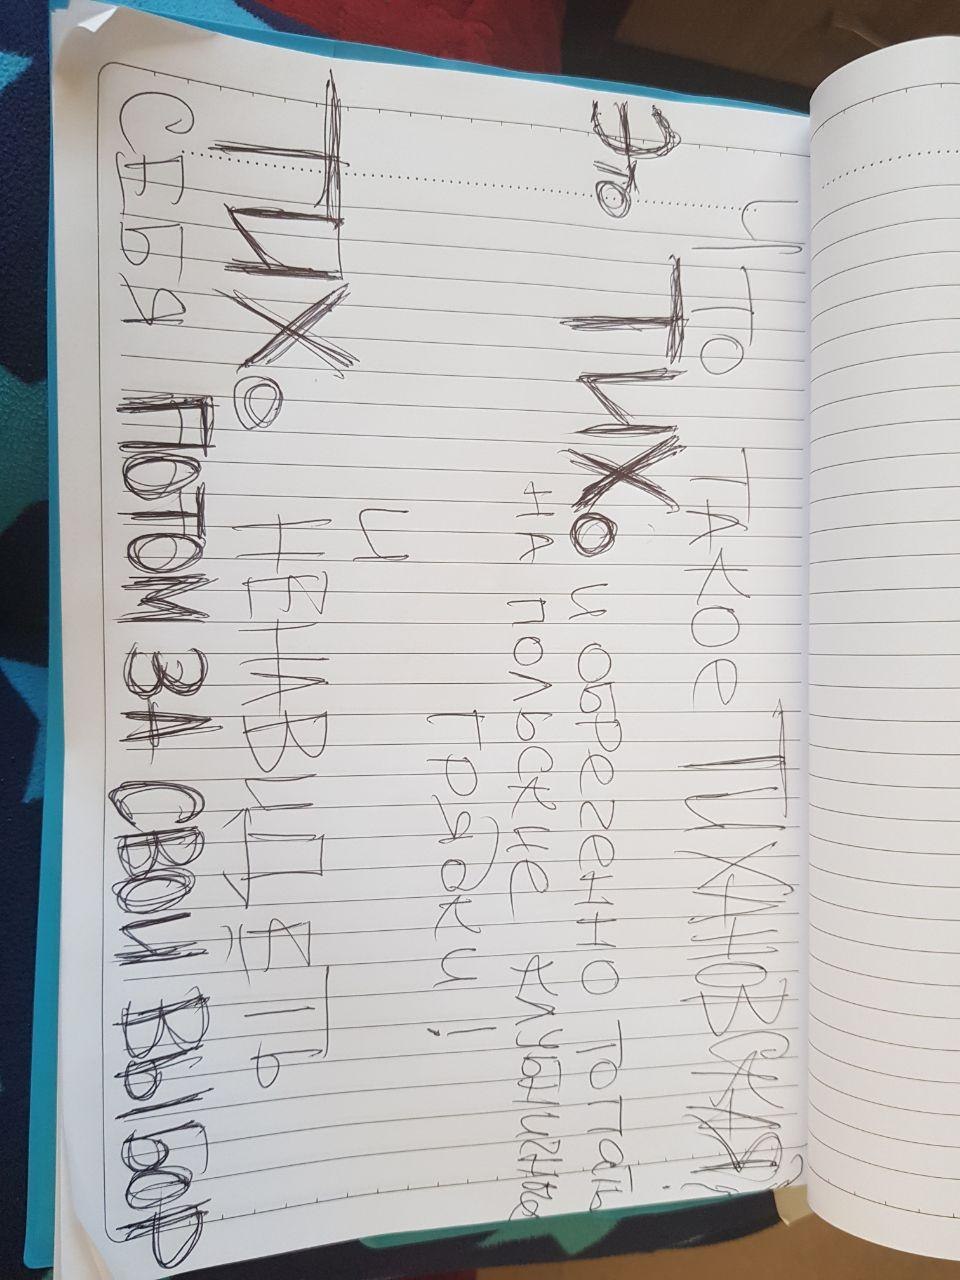 ЧТО ТАКОЕ ТИХАНОВСКАЯ?
ЭТО ТИХО И ОБРЕЧЕННО ТОПАТЬ
НА ПОЛЬСКИЕ КЛУБНИЧНЫЕ
ГРЯДКИ!
И
ТИХО НЕНАВИДЕТЬ
СЕБЯ ПОТОМ ЗА СВОЙ ВЫБОР